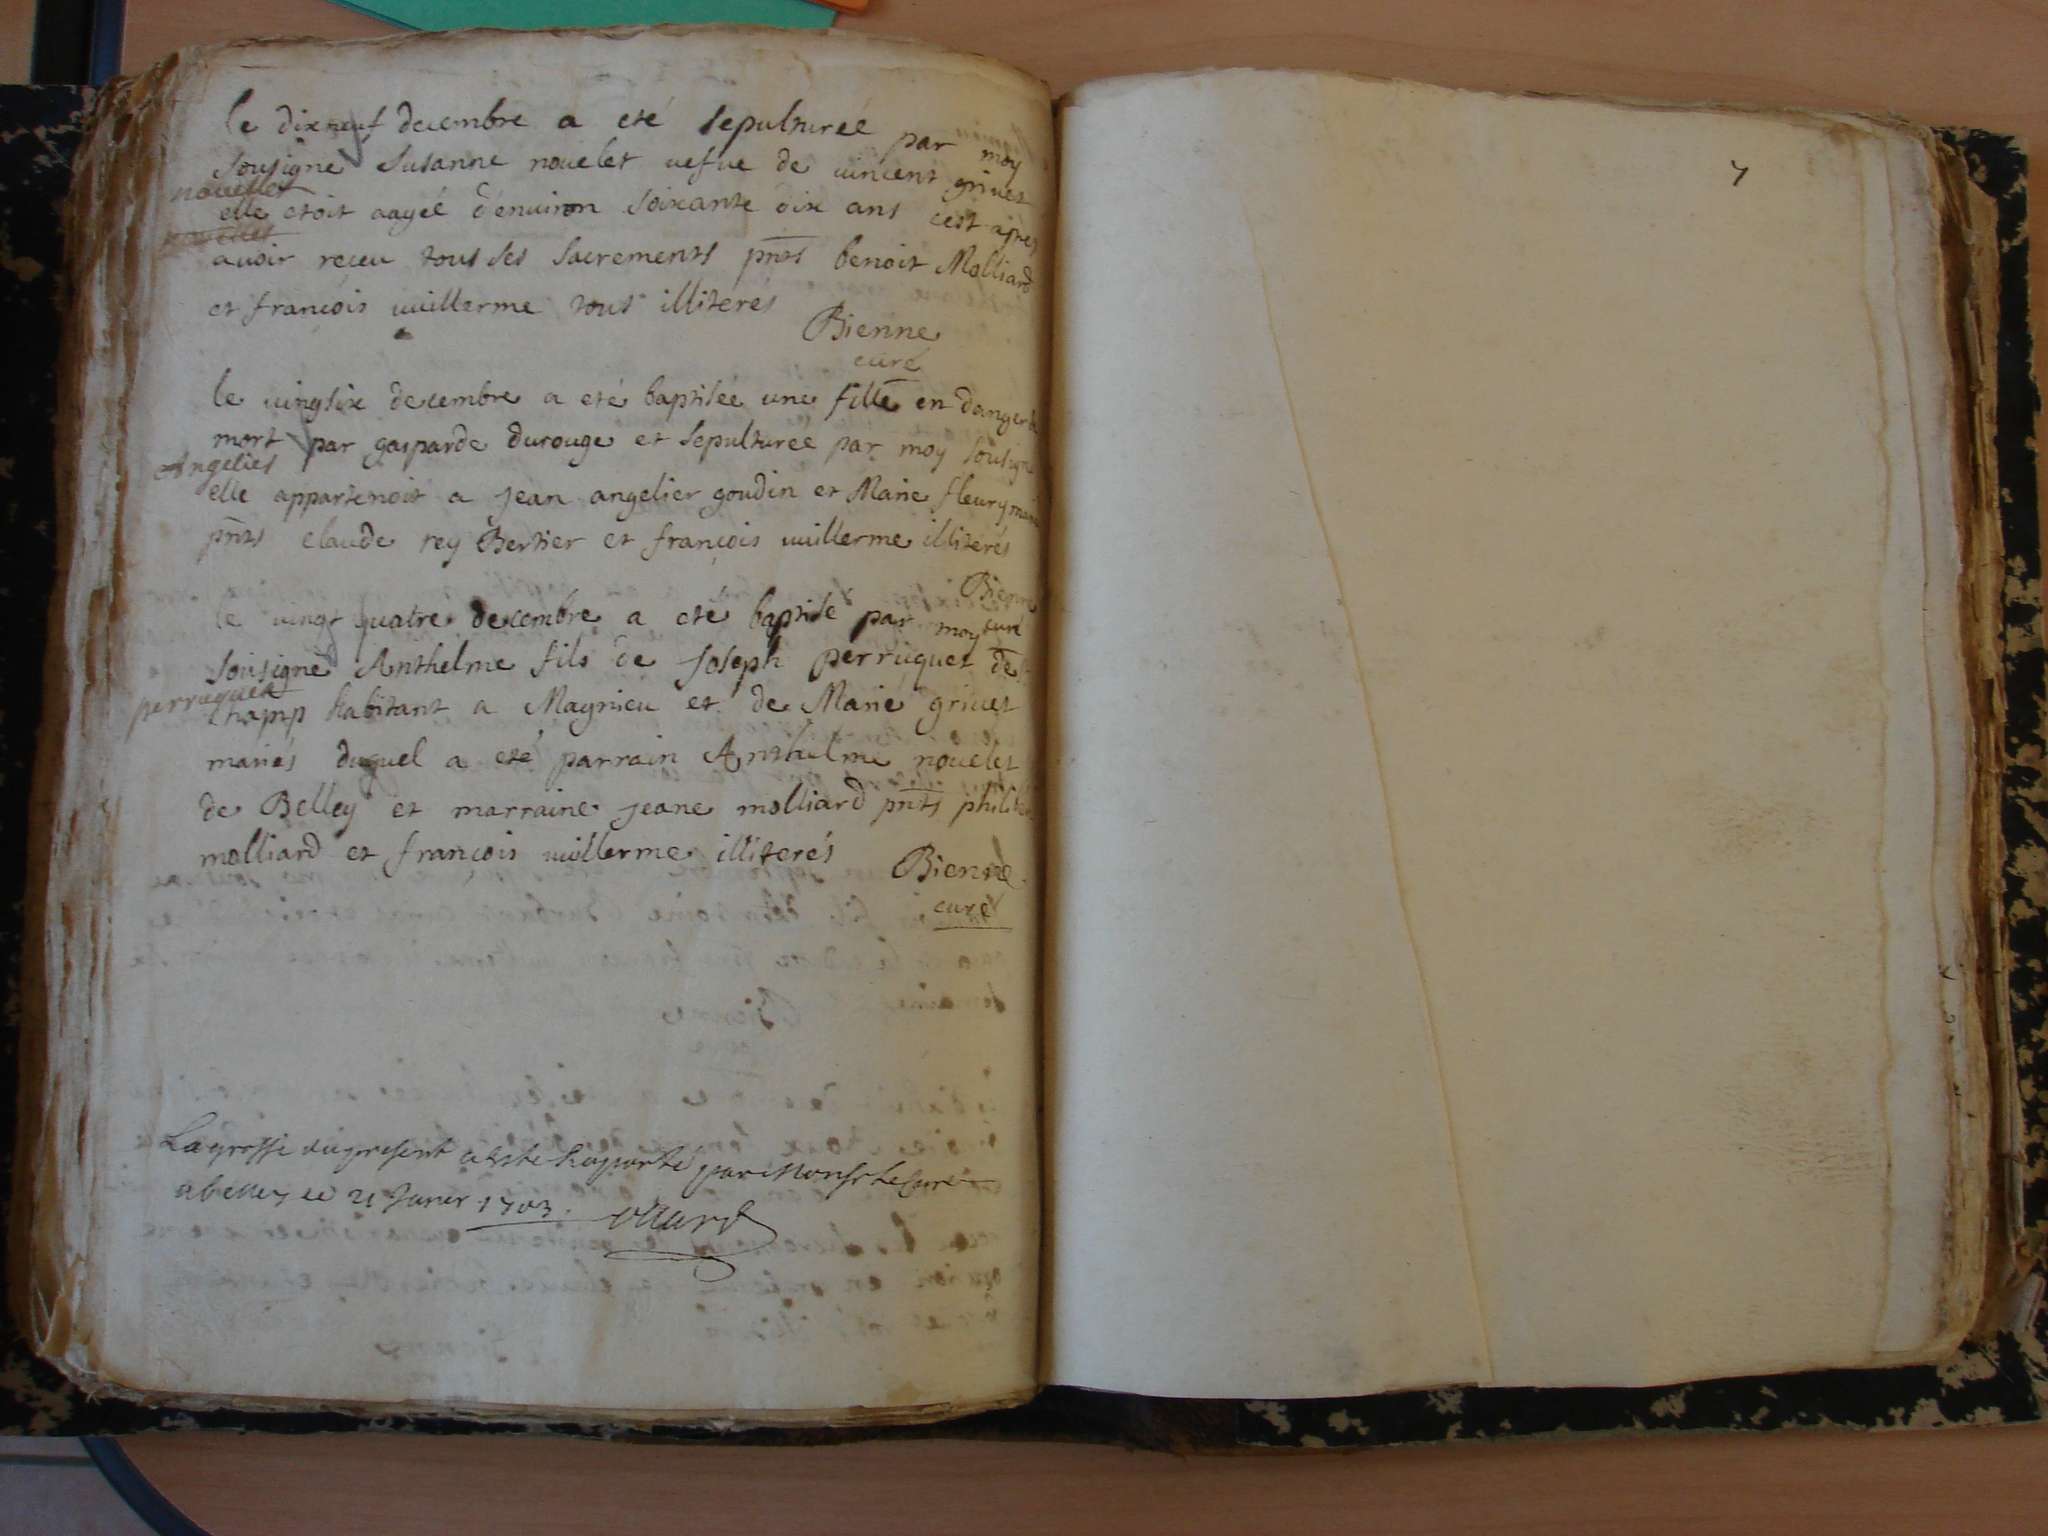 le dixneuf decembre a eté sepulturée par moy
sousigné Susanne nouelet uefue de uincent griuet
nouellet
elle etoit aagée d'enuiron soixante dix ans cest apres
nouellet
auoir receu tous ses sacrements pnts benoit Molliard
et françois uuillerme tous illiterés
Bienne
curé
le uingsix decembre a eté baptisée une fille en danger de
mort par gasparde durouge et sepulturée par moy sousigné
Angelier
elle appartenoit a jean angelier goudin et Marie fleury mariés
pnts claude rey Bertier et françois uuillerme illiterés
Bienne
curé
le uingt quatre decembre a eté baptisé par moy
sousigné Anthelme fils de joseph perruquet de
perruquet
champ habitant a Magnieu et de Marie griuet
mariés duquel a eté parrain Anthelme nouelet
de Belley et marraine jeane molliard pnts philibert
molliard et françois uuillerme illiterés
Bienne
curé
La grosse du present a esté Raporté par Monsr le Curé
a belley le 21 Janer 1703.
7